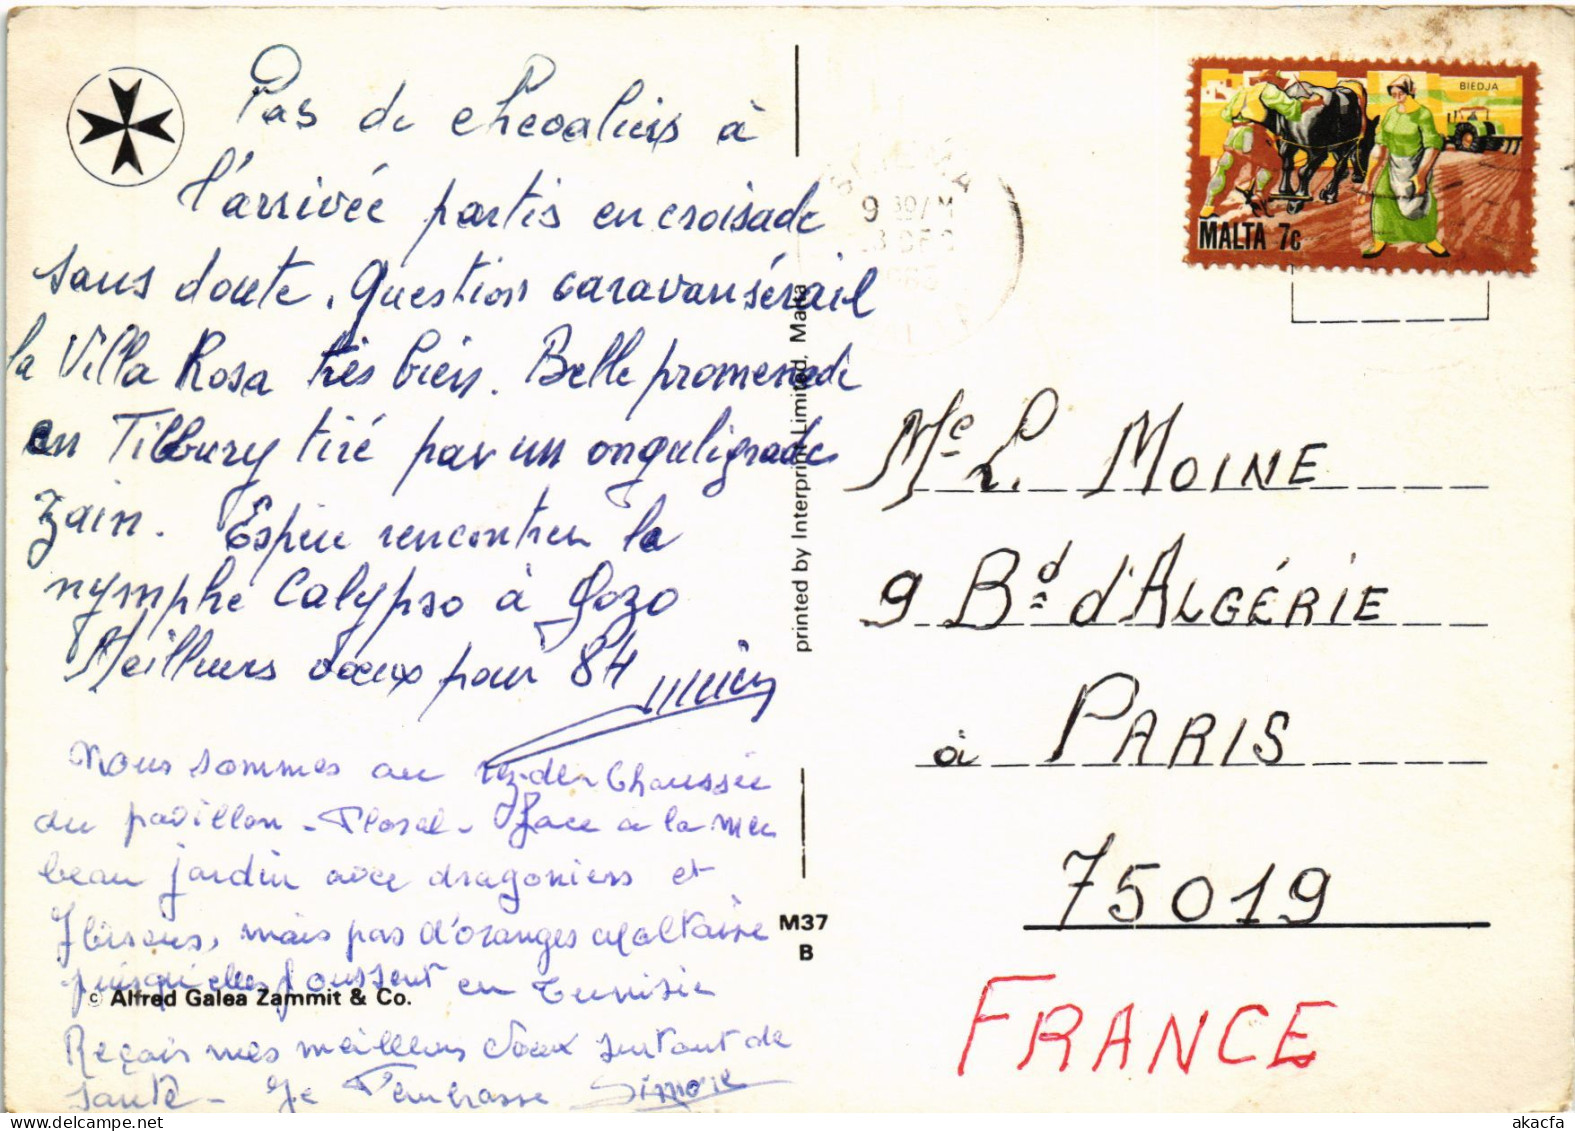 Pas de chevaliers à
l'arrivée partis en croisade
sans doute. Question caravansérail
la Villa Rosa très bien. Belle promenade
en Tilbury tiré par un onguligrade
zain. Espère rencontrer la
nymphe Calypso à Gozo
Meilleurs voeux pour 84
Nous sommes au rez-de-Chaussée
du pavillon - Floral - face à la mer
beau jardin avec dragoniers et
Ibiscus, mais pas d'oranges maltaise
puisqu'elles poussent en Tunisie
© Alfred Galea Zammit & Co.
Reçois mes meilleurs voeux surtout de
santé - Je t'embrasse Simone
printed by Interprint Limited, Malta
M37
B
BIEDJA
MALTA 7c
9 30AM
DEC
Me L. MOINE
9 Bd d'ALGÉRIE
à PARIS
75019
FRANCE
akacfa